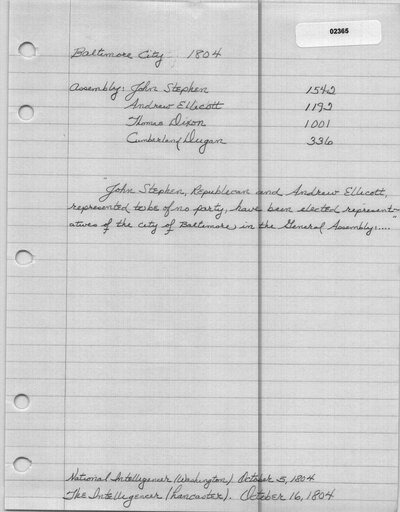 02365
Baltimore City 1804
Assembly: John Stephen 1542
Andrew Ellicott 1192
Thomas Dixon 1001
Cumberland Dugan 336
John Stephen, Republican and Andrew Ellicott,
represented to be of no party, have been elected represent-
atives of the city of Baltimore, in the General Assembly:...."
National Intelligencer (Washington). October 5, 1804
The Intelligencer (Lancaster). October 16, 1804